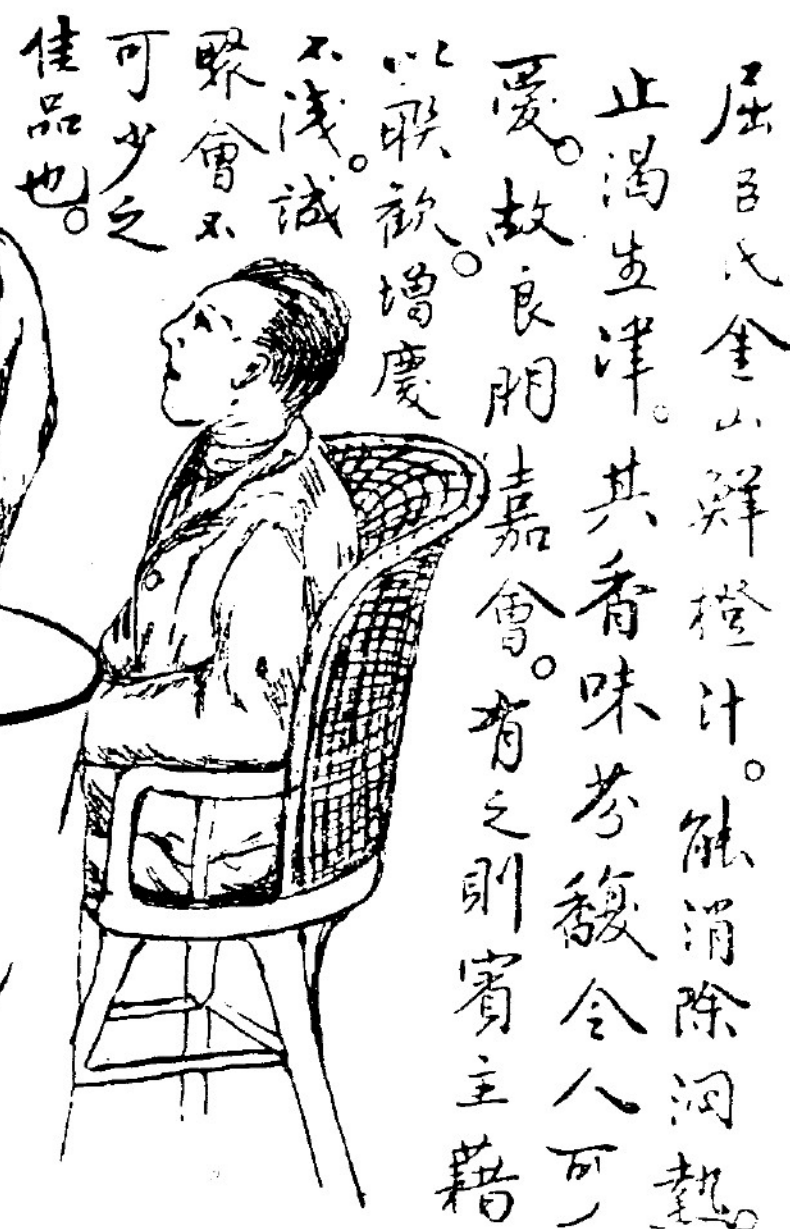 屈臣氏金山鮮橙汁。能消除悶熱。
止渴生津。其香味芬馥令人可
愛。故良朋嘉會。有之則賓主藉
以聯歡。增慶
不淺。誠
聚會不
可少之
佳品也。